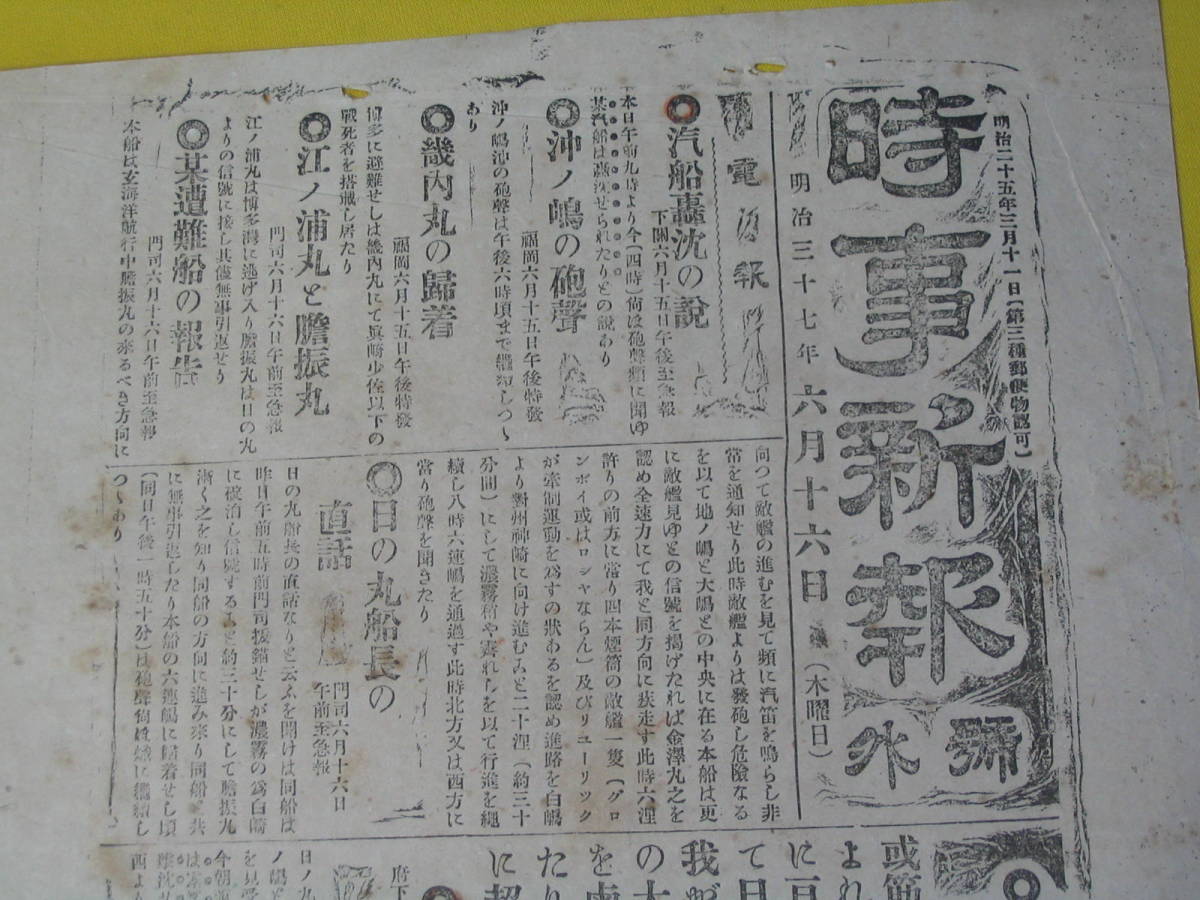 明治二十五年三月十一日(第三種郵便物認可)
時事新報
號外
明治三十七年六月十六日
(木曜日)
電報
◎汽船轟沈の說
下關六月十五日午後至急報
本日午前九時より今(四時)尙ほ砲聲頻に聞ゆ
某汽船は轟沈せられたりとの說あり
◎沖ノ嶋の砲聲
福岡六月十五日午後特發
沖ノ嶋沖の砲聲は午後六時頃まで繼續しつゝ
あり
◎畿内丸の歸着
福岡六月十五日午後特發
博多に避難せしは畿内丸にて眞崎少佐以下の
戰死者を搭載し居たり
◎江ノ浦丸と膽振丸
門司六月十六日午前至急報
江ノ浦丸は博多灣に逃げ入り膽振丸は日の丸
よりの信號に接し其儘無事引返せり
◎某遭難船の報告
門司六月十六日午前至急報
本船は玄海洋航行中膽振丸の來るべき方向に
向つて敵艦の進むを見て頻に汽笛を鳴らし非
常を通知せり此時敵艦よりは發砲し危險なる
を以て地ノ嶋と大嶋との中央に在る本船は更
に敵艦見ゆとの信號を揭げたれば金澤丸之を
認め全速力にて我と同方向に疾走す此時六浬
許りの前方に當り四本煙筒の敵艦一隻(グロ
ンボイ或はロシヤならん)及びリユーリツク
が牽制運動を爲すの狀あるを認め進路を白嶋
より對州神崎に向け進むこと二十浬(約三十
分間)にして濃霧稍や霽れしを以て行進を繩
續し八時六連嶋を通過す此時北方又は西方に
當り砲聲を聞きたり
◎日の丸船長の
直話
門司六月十六日
午前至急報
日の丸船長の直話なりと云ふを聞けば同船は
昨日午前五時前門司拔錨せしが濃霧の爲白嶋
に碇泊し信號すること約三十分にして膽振丸
漸く之を知り同船の方向に進み來り同船と共
に無事引返したり本船の六連嶋に歸着せし頃
(同日午後一時五十分)は砲聲尙熾に繼續し
つゝあり
或
よれ
に
て日
我が
の大
を
たり
に
府下
日ノ丸
ノ嶋
を見受
今朝
は
西よ